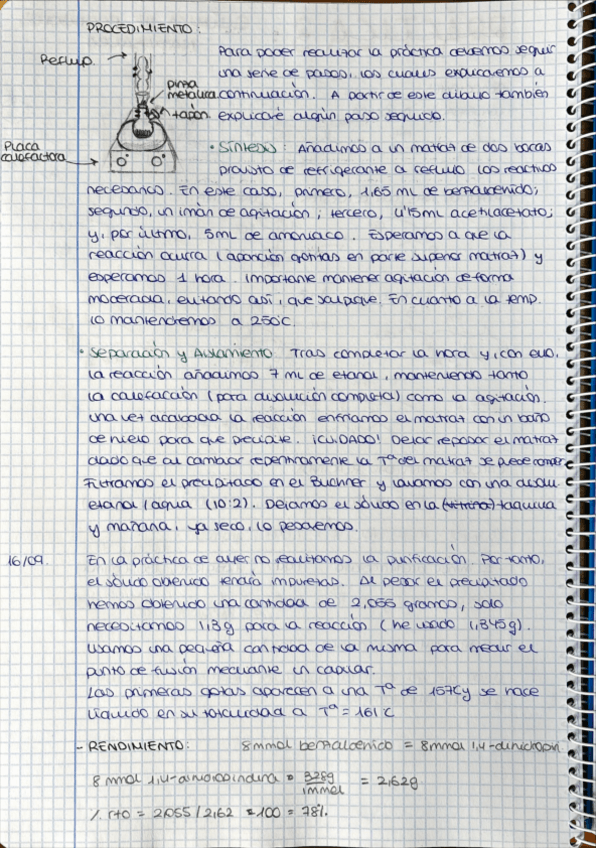 PROCEDIMIENTO:
Reflujo
pinza
metálica
tapón
Placa
calefactora
Para poder realizar la práctica debemos seguir
una serie de pasos, los cuales explicaremos a
continuación. A partir de este dibujo también
explicaré algún paso seguido.
• Síntesis: Añadimos a un matraz de dos bocas
provisto de refrigerante a reflujo los reactivos
necesarios. En este caso, primero, 1,65 mL de benzaldehído;
segundo, un imán de agitación; tercero, 4'15mL acetilacetato;
y, por último, 5mL de amoniaco. Esperamos a que la
reacción ocurra (aparición gotitas en parte superior matraz) y
esperamos 1 hora. Importante mantener agitación de forma
moderada, evitando así, que salpique. En cuanto a la temp.
lo mantendremos a 250ºC.
• Separación y Aislamiento Tras completar la hora y, con ello,
la reacción añadimos 7 mL de etanol, manteniendo tanto
la calefacción (para disolución completa) como la agitación.
Una vez acabada la reacción enfriamos el matraz con un baño
de hielo para que precipite. ¡CUIDADO! Dejar reposar el matraz
dado que al cambiar repentinamente la Tª del matraz se puede romper
Filtramos el precipitado en el Buchner y lavamos con una disolu
etanol/agua (10:2). Dejamos el sólido en la (vitrina) taquilla
y mañana, ya seco, lo pesaremos.
16/09. En la práctica de ayer no realizamos la purificación. Por tanto,
el sólido obtenido tendrá impurezas. Al pesar el precipitado
hemos obtenido una cantidad de 2,055 gramos, solo
necesitamos 1,13g para la reacción (he usado 1,345g).
Usamos una pequeña cantidad de la misma para medir el
punto de fusión mediante un capilar.
Las primeras gotas aparecen a una Tª de 157C y se hace
líquido en su totalidad a Tª = 161 C
- RENDIMIENTO: 8 mmol benzaldehído = 8 mmol 1,4-dihidropiri
8 mmol 1,4-dihidropiridina · 328g / 1mmol = 2,62g
% rto = 2,055/2,62 · 100 = 78%.